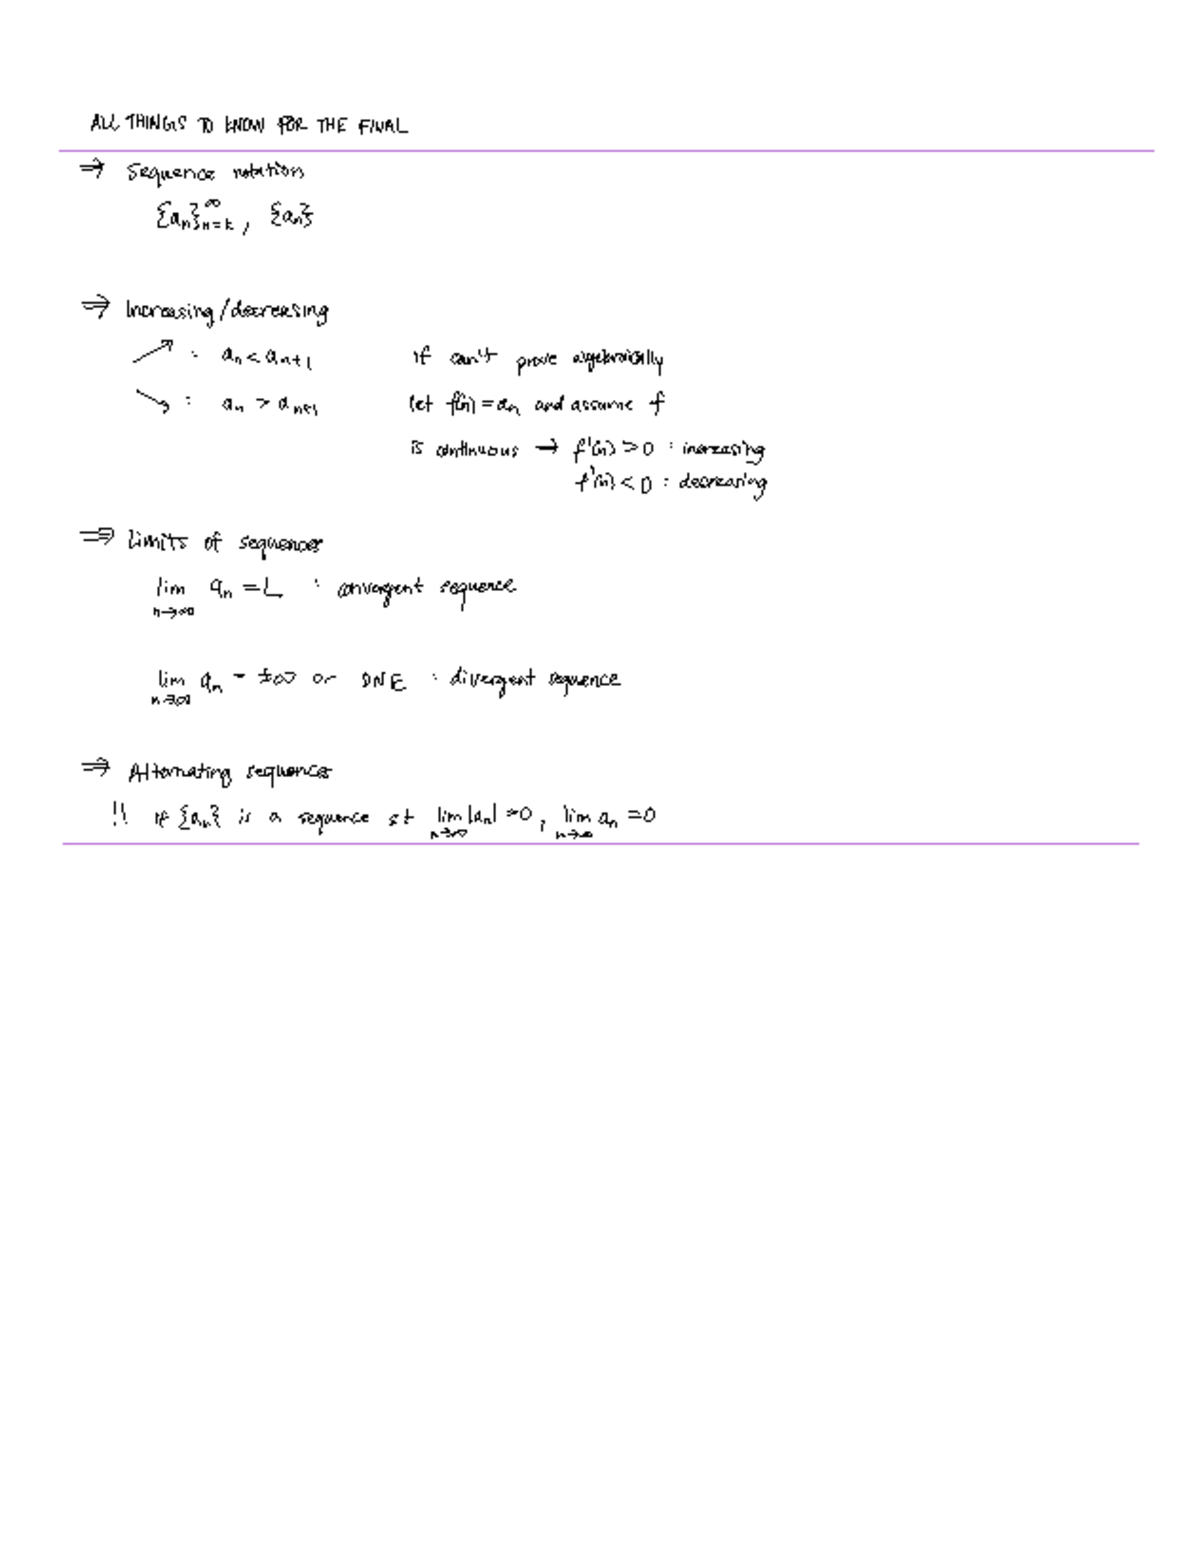 ALL THINGS TO KNOW FOR THE FINAL
⇒ Sequence notation
{aₙ}ₙ₌ₖ^∞, {aₙ}
⇒ Increasing/decreasing
↗ : aₙ < aₙ₊₁ if can't prove algebraically
↘ : aₙ > aₙ₊₁ let f(n) = aₙ and assume f
is continuous → f'(n) > 0 : increasing
f'(n) < 0 : decreasing
⇒ Limits of sequences
lim aₙ = L : convergent sequence
n→∞
lim aₙ = ±∞ or DNE : divergent sequence
n→∞
⇒ Alternating sequences
!! if {aₙ} is a sequence st lim |aₙ| = 0, lim aₙ = 0
n→∞ n→∞